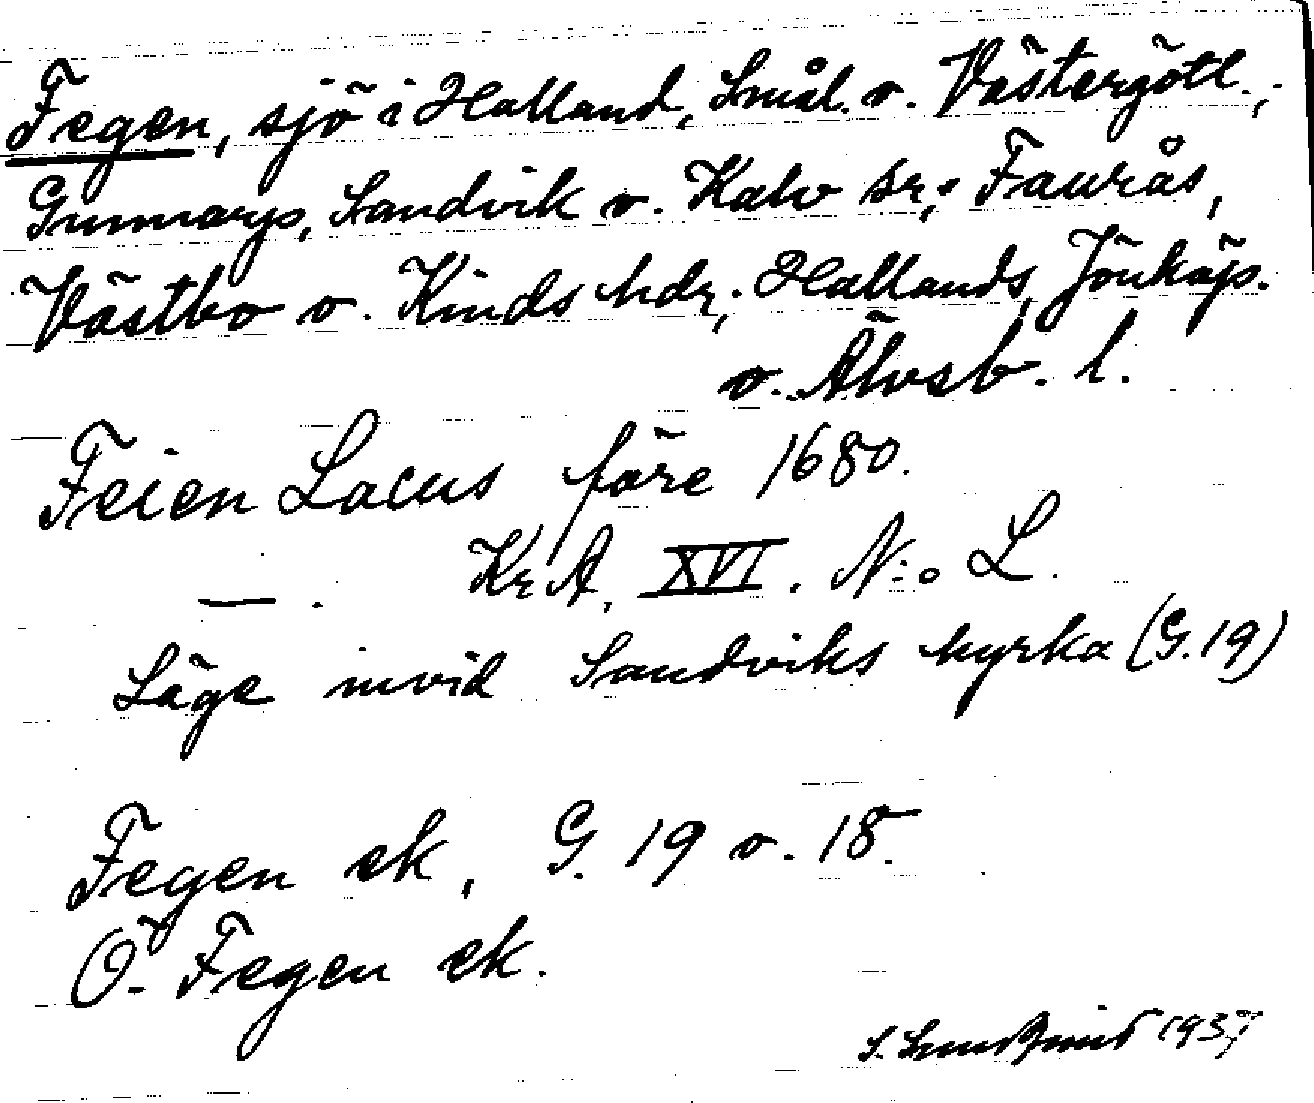 Fegen, sjö i Halland, Smål. o. Västergötl.,
Gunnarps, Sandvik o. Kalv sr; Faurås,
Västbo o. Kinds hdr; Hallands, Jönköp.
o. Älvsb. l.
Feien Lacus före 1680.
— . KrA, XVI. N:o L.
Läge invid Sandviks kyrka (G. 19)
Fegen ek, G. 19 o. 18.
Ö. Fegen ek.
S. 1937